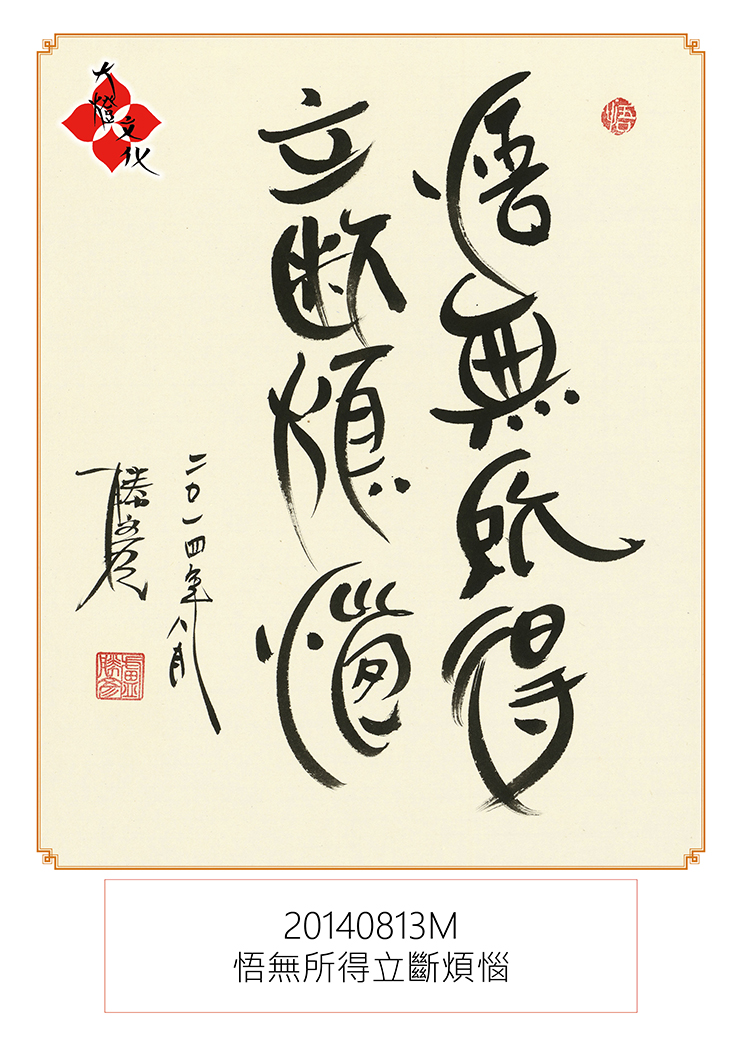 大燈文化
悟
悟無所得
立斷煩惱
二〇一四年八月
勝彥
盧勝彥
20140813M
悟無所得立斷煩惱